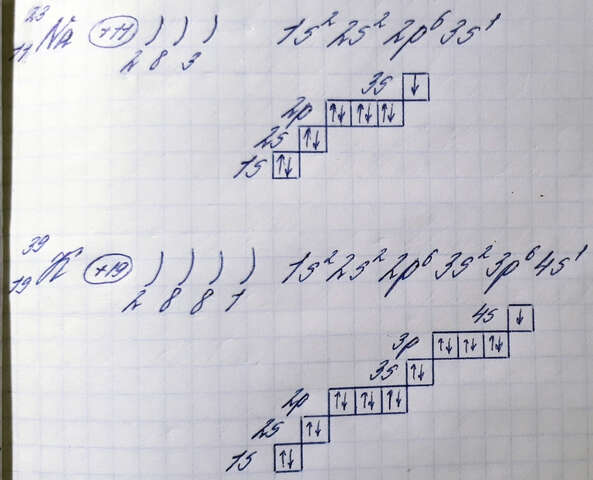 23
11 Na +11 ) ) ) 1s² 2s² 2p⁶ 3s¹
2 8 3
3s ↓
2p ↑↓ ↑↓ ↑↓
2s ↑↓
1s ↑↓
39
19 K +19 ) ) ) ) 1s² 2s² 2p⁶ 3s² 3p⁶ 4s¹
2 8 8 1
4s ↓
3p ↑↓ ↑↓ ↑↓
3s ↑↓
2p ↑↓ ↑↓ ↑↓
2s ↑↓
1s ↑↓